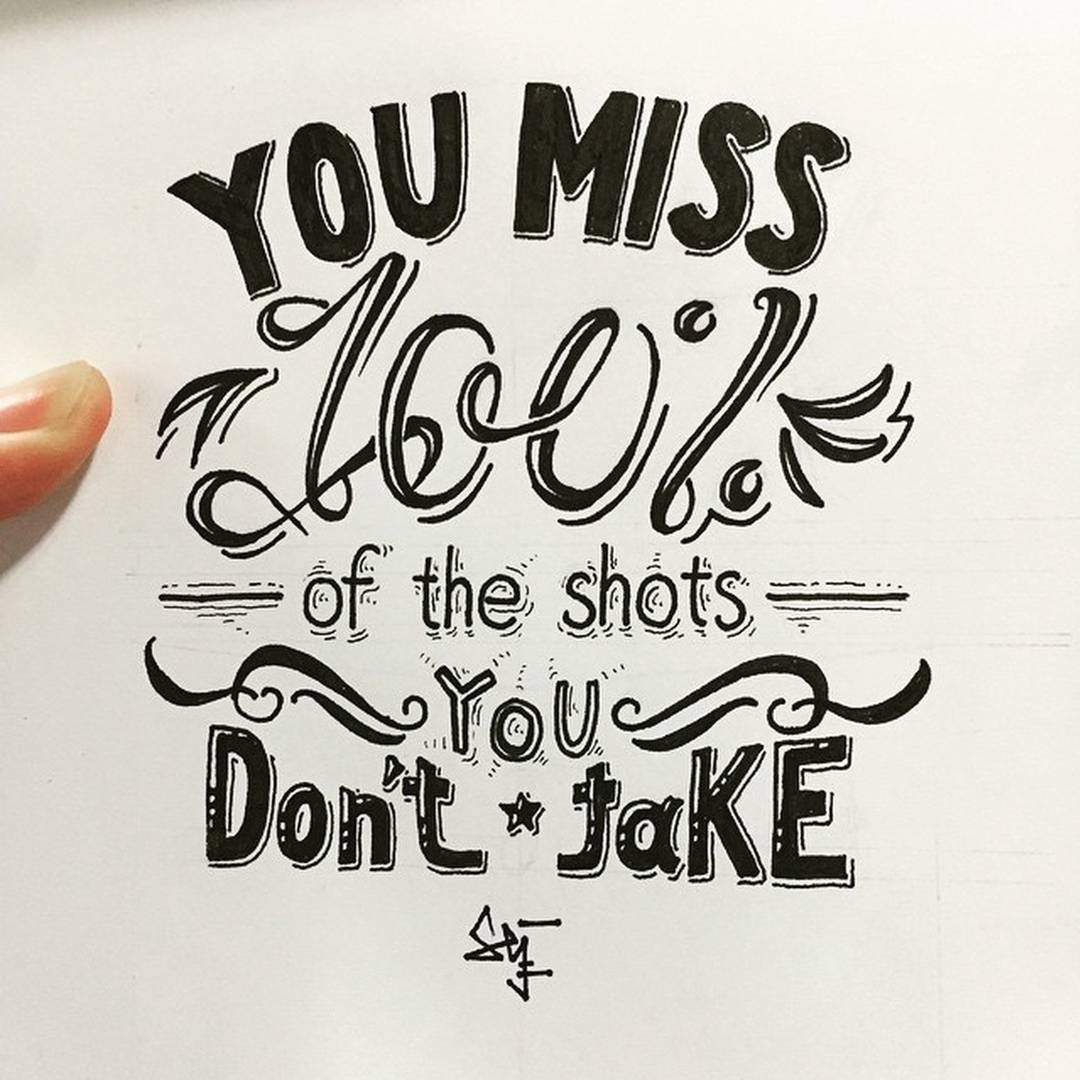 YOU MISS
100%
of the shots
YOU
Don't ★ taKE